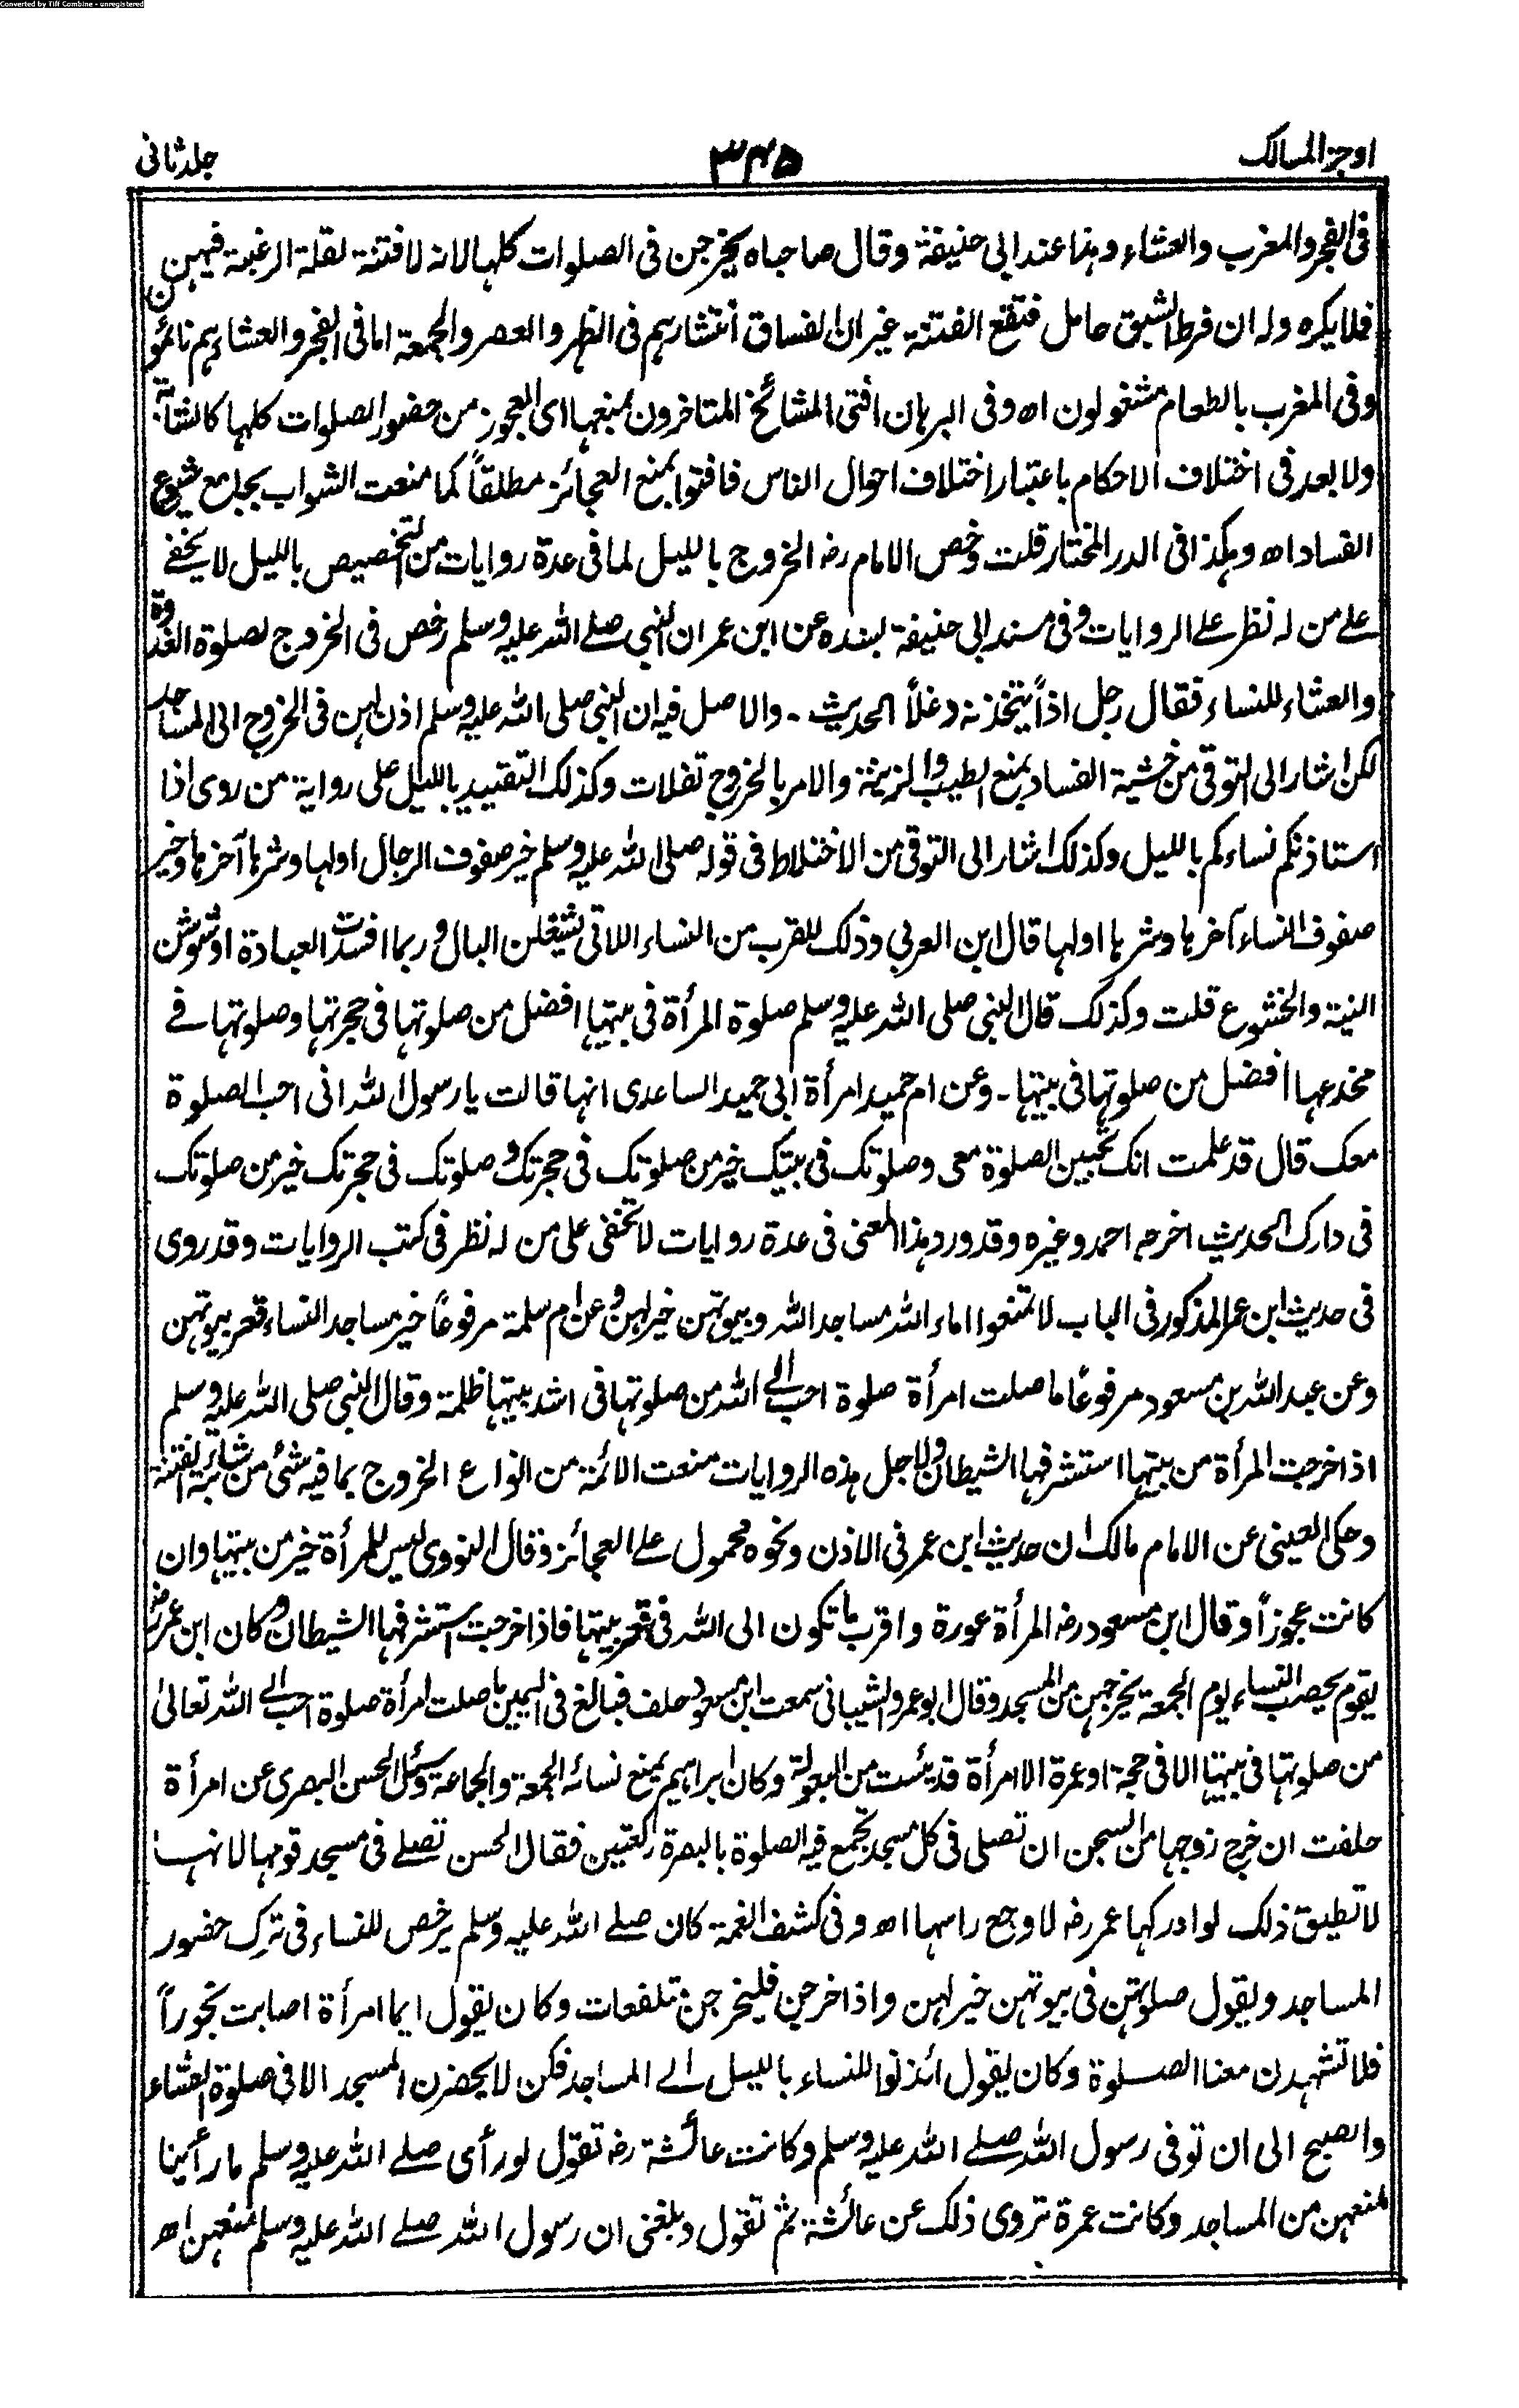 Converted by Tiff Combine - unregistered
اوجز المسالك
۳۴۵
جلد ثانی
فى الفجر والمغرب والعشاء وهذا عند ابى حنيفة وقال صاحباه يخرجن فى الصلوات كلها لانه لا فتنة لقلة الرغبة فيهن
فلا يكره وله ان فرط الشبق حامل فتقع الفتنة غير ان الفساق انتشارهم فى الظهر والعصر والجمعة اما فى الفجر والعشاء هم نائمون
وفى المغرب بالطعام مشغولون اه وفى البرهان افتى المشائخ المتاخرون بمنعها اى العجوز من حضور الصلوات كلها كالشابة
ولا بعد فى اختلاف الاحكام باعتبار اختلاف احوال الناس فافتوا بمنع العجائز مطلقاً كما منعت الشواب بجامع شيوع
الفساد اه وهكذا فى الدر المختار قلت وخص الامام رضه الخروج بالليل لما فى عدة روايات من التخصيص بالليل لا يخفے
علے من له نظر علے الروايات وفى مسند ابى حنيفة بسنده عن ابن عمر ان النبي صلے الله عليه وسلم رخص فى الخروج لصلوة الغدوة
والعشاء للنساء فقال رجل اذاً يتخذنه دغلاً الحديث ۔ والاصل فيه ان النبى صلى الله عليه وسلم اذن لهن فى الخروج الى المساجد
لكن اشار الى التوقى من خشية الفساد بمنع الطيب والزينة والامر بالخروج تفلات وكذلك التقييد بالليل على رواية من روى اذا
استاذنكم نساءكم بالليل وكذلك اشار الى التوقى من الاختلاط فى قوله صلى الله عليه وسلم خير صفوف الرجال اولها وشرها آخرها وخير
صفوف النساء آخرها وشرها اولها قال ابن العربي وذلك للقرب من النساء اللاتى يشغلن البال وربما افسدت العبادة او شوشن
النية والخشوع قلت وكذلك قال النبى صلى الله عليه وسلم صلوة المرأة فى بيتها افضل من صلوتها فى حجرتها وصلوتها فے
مخدعها افضل من صلوتها فى بيتها ۔ وعن ام حميد امرأة ابى حميد الساعدى انها قالت يا رسول الله انى احب الصلوة
معك قال قد علمت انك تحبين الصلوة معى وصلوتك فى بيتك خير من صلوتك فى حجرتك وصلوتك فى حجرتك خير من صلوتك
فى دارك الحديث اخرجه احمد وغيره وقد ورد هذا المعنى فى عدة روايات لا تخفى على من له نظر فى كتب الروايات وقد روى
فى حديث ابن عمر المذكور فى الباب لا تمنعوا اماء الله مساجد الله وبيوتهن خير لهن وعن ام سلمة مرفوعاً خير مساجد النساء قعر بيوتهن
وعن عبد الله بن مسعود مرفوعاً ما صلت امرأة صلوة احب الے الله من صلوتها فى اشد بيتها ظلمة وقال النبى صلى الله عليه وسلم
اذا خرجت المرأة من بيتها استشرفها الشيطان ولاجل هذه الروايات منعت الائمة من انواع الخروج بما فيه شئ من شائبة الفتنة
وحكى العينى عن الامام مالك ان حديث ابن عمر فى الاذن ونحوه محمول علے العجائز وقال النووى ليس للمرأة خير من بيتها وان
كانت عجوزاً وقال ابن مسعود رضه المرأة عورة واقرب ما تكون الى الله فى قعر بيتها فاذا خرجت استشرفها الشيطان وكان ابن عمر رضه
يقوم يحصب النساء يوم الجمعة يخرجهن من المسجد وقال ابو عمرو الشيبانى سمعت ابن مسعود حلف فبالغ فى اليمين ما صلت امرأة صلوة احب الے الله تعالىٰ
من صلوتها فى بيتها الا فى حجة او عمرة الا امرأة قد يئست من البعولة وكان ابراهيم يمنع نسائه الجمعة والجماعة وسئل الحسن البصرى عن امرأة
حلفت ان خرج زوجها من السجن ان تصلى فى كل مسجد تجمع فيه الصلوة بالبصرة ركعتين فقال الحسن تصلے فى مسجد قومها لانها
لا تطيق ذلك لو ادركها عمر رضه لاوجع راسها اه وفى كشف الغمة كان صلے الله عليه وسلم يرخص للنساء فى ترك حضور
المساجد ويقول صلوتهن فى بيوتهن خير لهن واذا خرجن فليخرجن متلفعات وكان يقول ايما امرأة اصابت بخوراً
فلا تشهدن معنا الصلوة وكان يقول ائذنوا للنساء بالليل الے المساجد فكن لا يحضرن المسجد الا فى صلوة العشاء
والصبح الى ان توفى رسول الله صلے الله عليه وسلم وكانت عائشة رضه تقول لو رأى صلے الله عليه وسلم ما رأينا
لمنعهن من المساجد وكانت عمرة تروى ذلك عن عائشة ثم تقول وبلغنى ان رسول الله صلے الله عليه وسلم منعهن اه